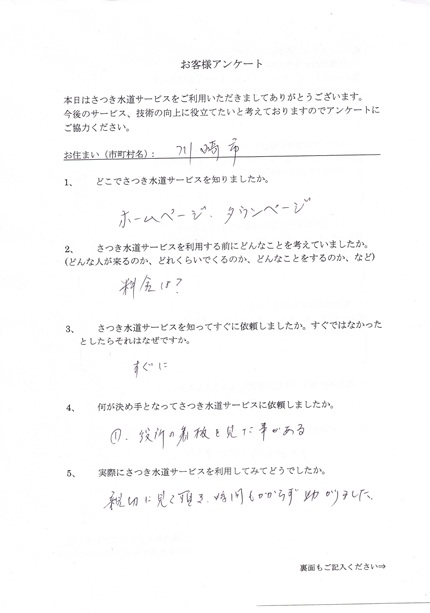 お客様アンケート
本日はさつき水道サービスをご利用いただきましてありがとうございます。
今後のサービス、技術の向上に役立てたいと考えておりますのでアンケートに
ご協力ください。
お住まい（市町村名）： 川崎市
1、 どこでさつき水道サービスを知りましたか。
ホームページ．タウンページ
2、 さつき水道サービスを利用する前にどんなことを考えていましたか。
(どんな人が来るのか、どれくらいでくるのか、どんなことをするのか、など)
料金は？
3、 さつき水道サービスを知ってすぐに依頼しましたか。すぐではなかった
としたらそれはなぜですか。
すぐに
4、 何が決め手となってさつき水道サービスに依頼しましたか。
①．役所の看板を見た事がある
5、 実際にさつき水道サービスを利用してみてどうでしたか。
親切に見て頂き、時間もかからず助かりました。
裏面もご記入ください⇒